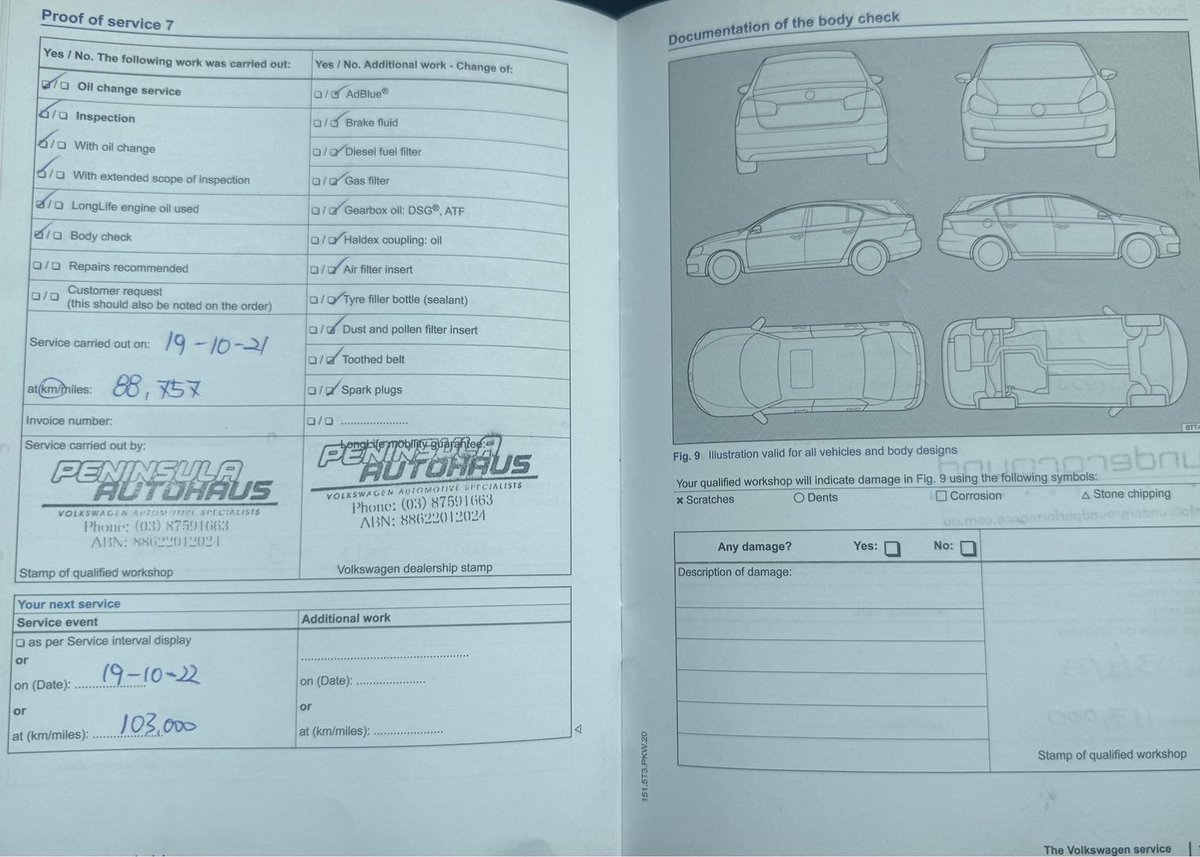 Proof of service 7
Yes / No. The following work was carried out:
☑/☐ Oil change service
☑/☐ Inspection
☑/☐ With oil change
☑/☐ With extended scope of inspection
☑/☐ LongLife engine oil used
☑/☐ Body check
☐/☐ Repairs recommended
☐/☐ Customer request
(this should also be noted on the order)
Service carried out on: 19-10-21
at(km/miles: 88,757
Invoice number:
Service carried out by:
PENINSULA
AUTOHAUS
VOLKSWAGEN AUTOMOTIVE SPECIALISTS
Phone: (03) 87591663
ABN: 88622012024
Stamp of qualified workshop
Yes / No. Additional work - Change of:
☐/☑ AdBlue®
☐/☑ Brake fluid
☐/☑ Diesel fuel filter
☐/☑ Gas filter
☐/☑ Gearbox oil: DSG®, ATF
☐/☑ Haldex coupling: oil
☐/☑ Air filter insert
☐/☑ Tyre filler bottle (sealant)
☐/☑ Dust and pollen filter insert
☐/☑ Toothed belt
☐/☑ Spark plugs
☐/☐ .....................
LongLife mobility guarantee:
PENINSULA
AUTOHAUS
VOLKSWAGEN AUTOMOTIVE SPECIALISTS
Phone: (03) 87591663
ABN: 88622012024
Volkswagen dealership stamp
Your next service
Service event
☐ as per Service interval display
or
on (Date): 19-10-22
or
at (km/miles): 103,000
Additional work
..................................................
on (Date): .....................
or
at (km/miles): .....................
Documentation of the body check
Fig. 9 Illustration valid for all vehicles and body designs
Your qualified workshop will indicate damage in Fig. 9 using the following symbols:
× Scratches ○ Dents ☐ Corrosion △ Stone chipping
Any damage? Yes: ☐ No: ☐
Description of damage:
Stamp of qualified workshop
151.5T3.PKW.20
The Volkswagen service